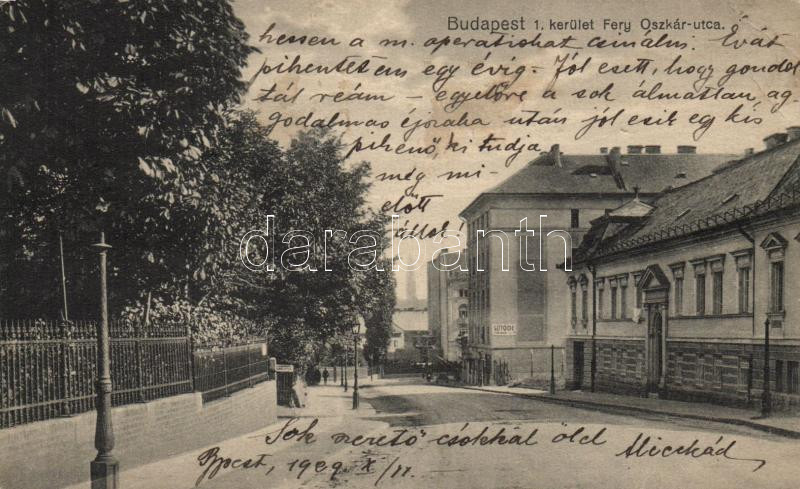 Budapest 1. kerület Fery Oszkár-utca.
hessen a m. operatiohat csinálni. Évát
pihentetem egy évig. Jól esett, hogy gondol
tál reám – egyelőre a sok álmatlan ag
godalmas éjszaka után jól esik egy kis
pihenő, ki tudja
még mi-
előtt
állek!
darabanth
Sok szerető csókkal öled Miczkád
Bpest, 1909 X/11.